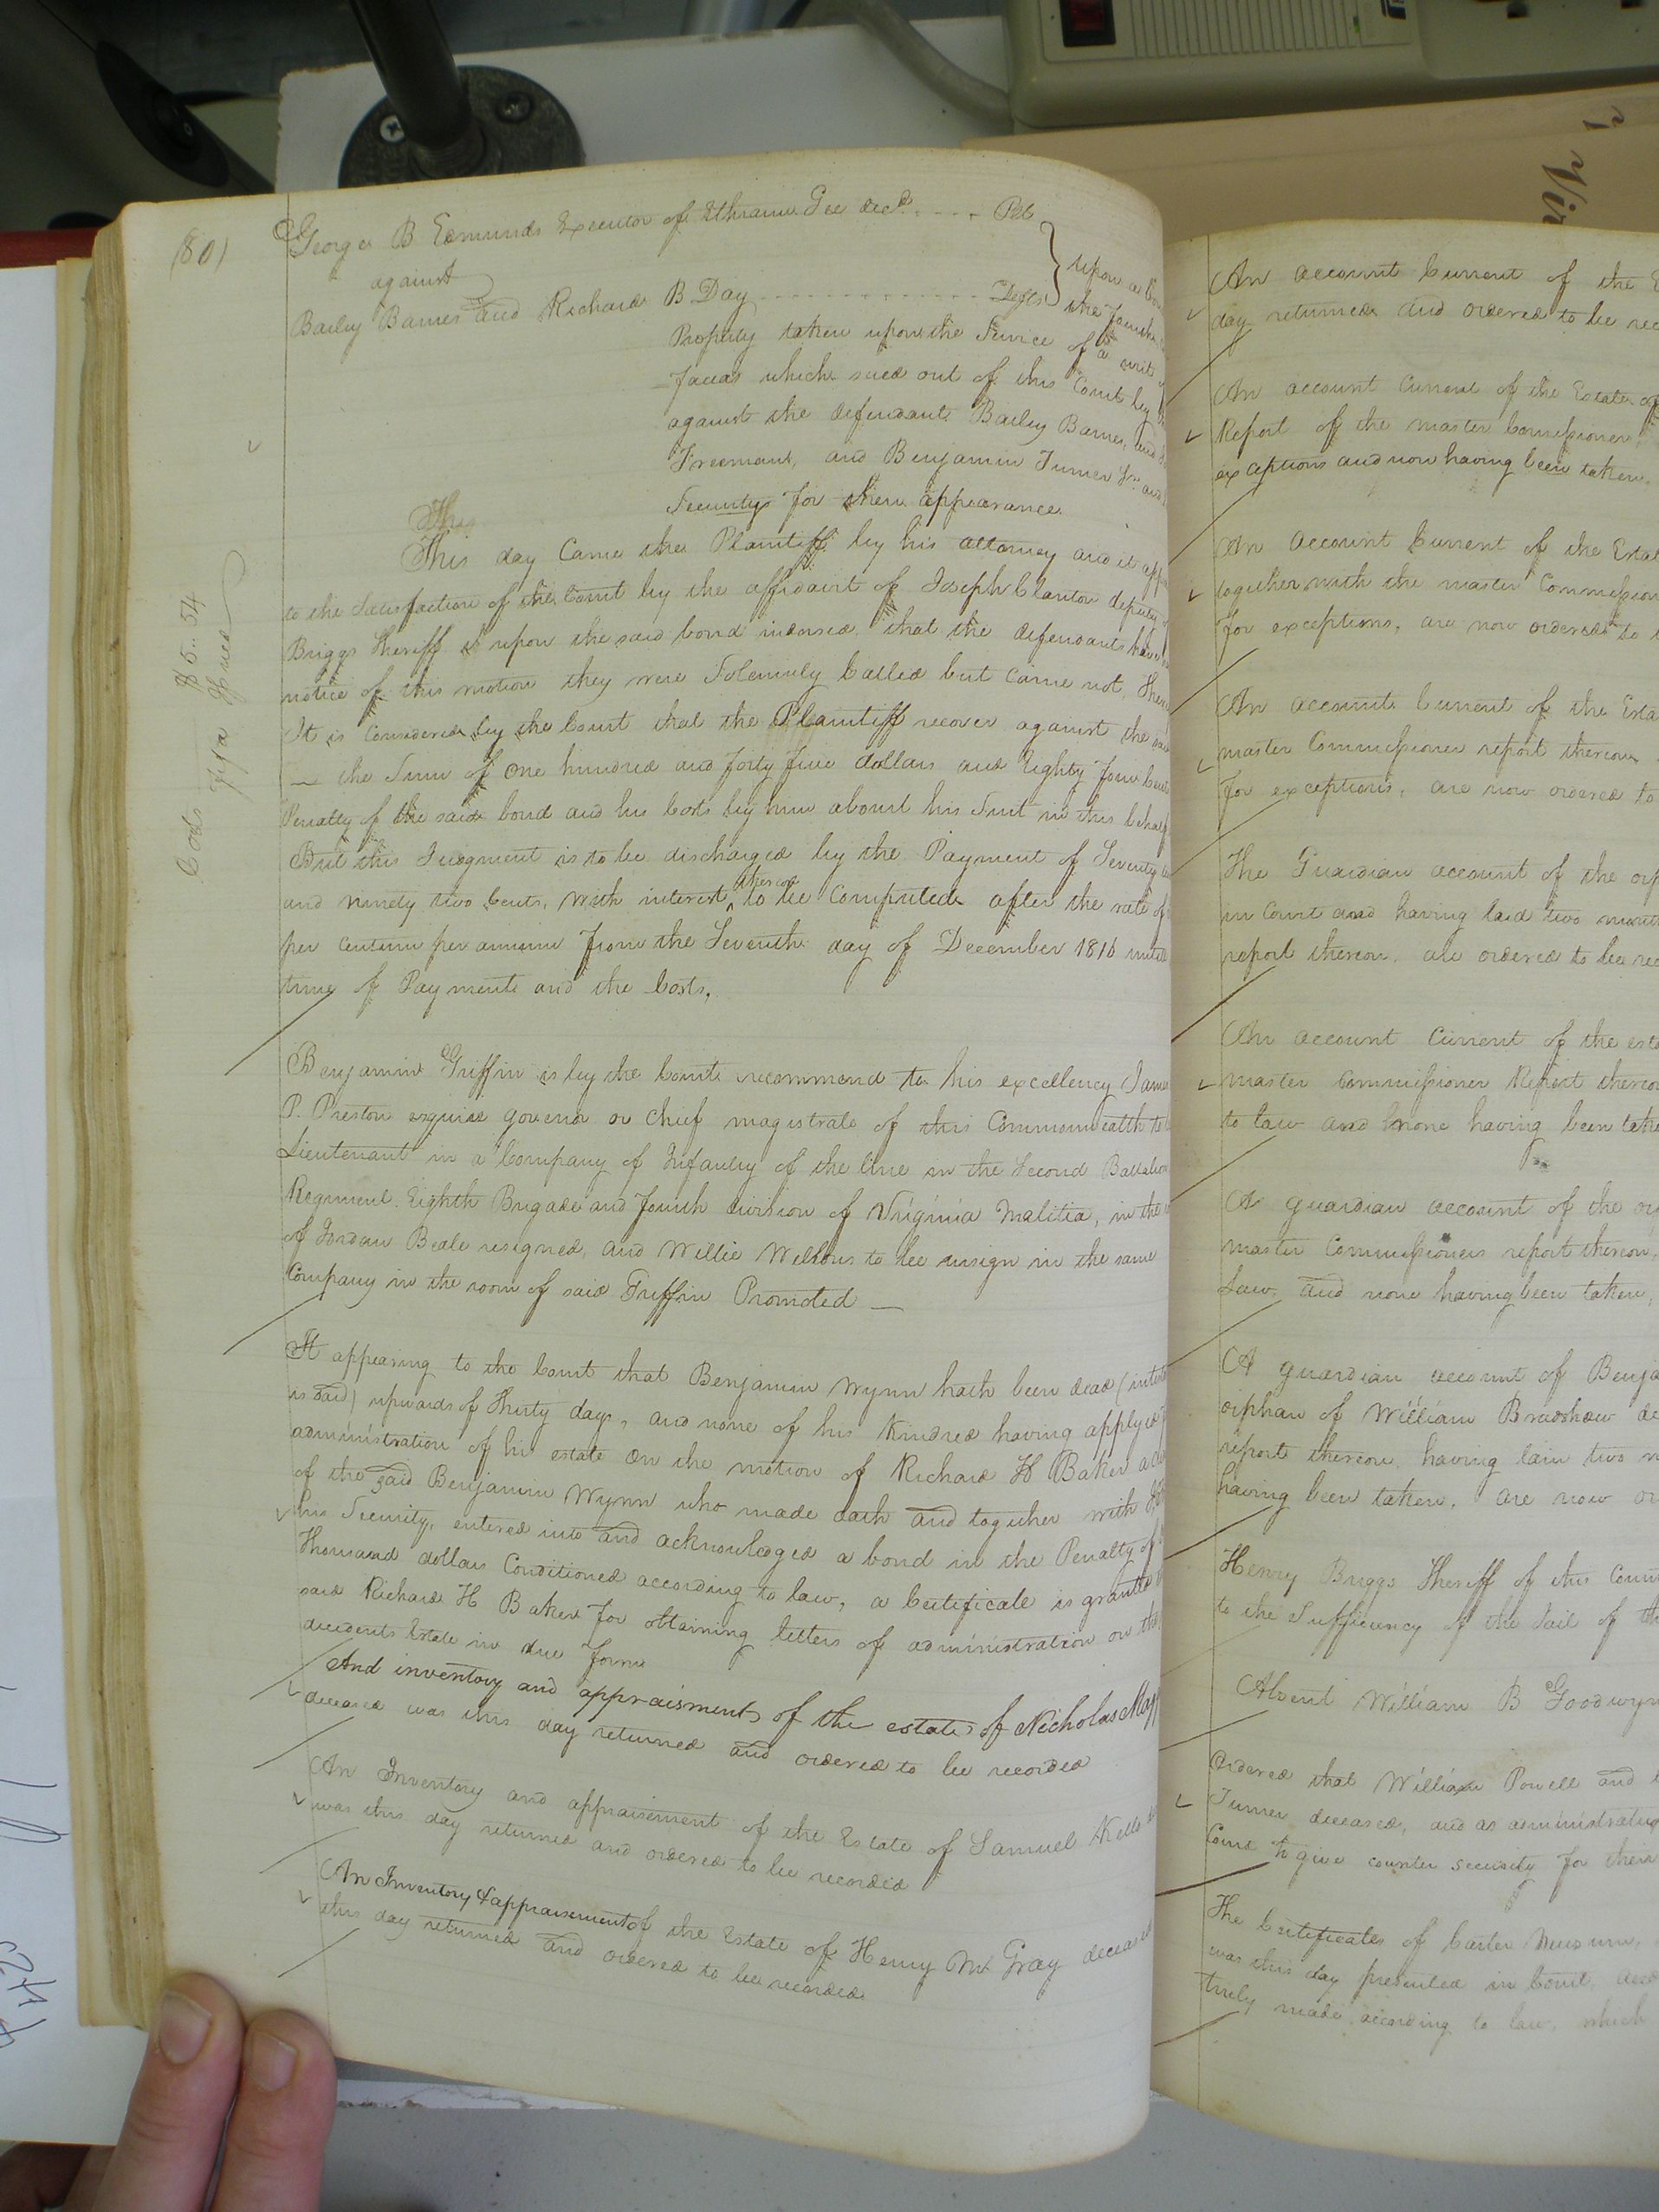 (80)
George B Edmunds Executor of Ethraim Gee decd. .... Plt
against
Bailey Barnes and Richard B Day .............. Defts
upon a
the
Property taken upon the Service of a writ
facias which sued out of this Court by
against the defendant Bailey Barnes, and
Freeman, and Benjamin Turner Jr. and
Security for their appearance.
This
This day Came the Plaintiff by his attorney and it app
to the Satisfaction of the Court by the affidavit of Joseph Clanton deputy
Briggs Sheriff upon the said bond indorsed, that the defendants have
notice of this motion they were Solemnly Called but Came not, Ther
It is Considered by the Court that the Plaintiff recover against the sai
— the Sum of One hundred and forty five dollars and Eighty four Cents
Penalty of the said bond and his Costs by him about his Suit in this behalf
But this Judgment is to be discharged by the Payment of Seventy
and ninety two Cents, with interest thereon to be Computed after the rate of
per centum per annum from the Seventh day of December 1816 until
time of Payment and the Costs.
Costs $5..54
fifa Issued
Benjamin Griffin is by the Court recommend to his excellency Jame
P. Preston esquire governor or Chief magistrate of this Commonwealth to
Lieutenant in a Company of Infantry of the line in the Second Battalion
Regiment. Eighth Brigade and fourth division of Virginia Malitia, in the
of Jordan Beale resigned, and Willie Wellons to be ensign in the same
Company in the room of said Griffin Promoted —
It appearing to the Court that Benjamin Wynn hath been dead (intes
is said) upwards of Thirty days, and none of his Kindred having applyed
administration of his estate on the motion of Richard H Baker
of the said Benjamin Wynn who made oath and together with
his Security, entered into and acknowledged a bond in the Penalty of
Thousand dollars Conditioned according to law, a Certificate is grante
said Richard H Baker for obtaining letters of administration on the
decedents Estate in due form
And inventory and appraisment of the estate of Nicholas
deceased was this day returned and ordered to be recorded
An Inventory and appraisement of the Estate of Samuel Kello
was this day returned and ordered to be recorded
An Inventory & appraisement of the Estate of Henry M Gray deceased
this day returned and ordered to be recorded
An account Current of the E
day returned and ordered to be rec
An account Current of the Estate of
Report of the master Commissioner,
exceptions and now having been taken.
An Account Current of the Estat
together with the master Commission
for exceptions, are now ordered to
An account Current of the Esta
master Commissioner report thereon
for exceptions, are now ordered to
The Guardian account of the orp
in Court and having laid two month
report thereon. are ordered to be rec
An account Current of the esta
master Commissioner Report thereo
to law and none having been take
A guardian account of the or
master Commissioners report thereon,
Law, and none having been taken,
A guardian account of Benja
orphan of William Bradshaw de
report thereon, having lain two m
having been taken, are now or
Henry Briggs Sheriff of this Coun
to the Sufficiency of the Jail of th
Absent William B Goodwyn
Ordered that William Powell and
Turner deceased, and as administrator
Court to give counter security for their
The Certificates of Carter
was this day presented in Court,
truly made according to law, which